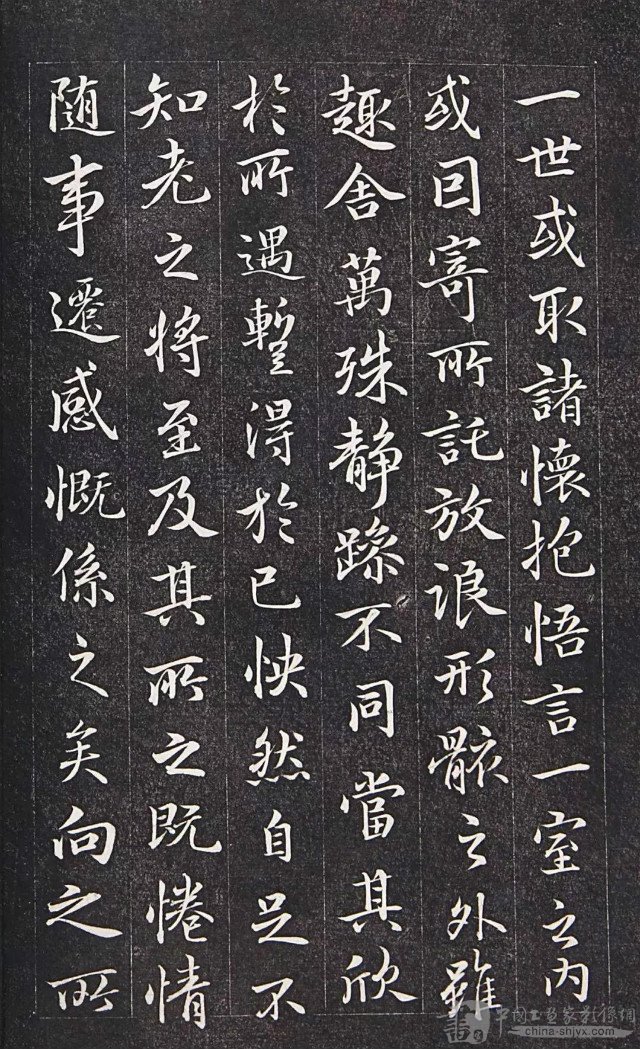 一世或取諸懷抱悟言一室之内
或因寄所託放浪形骸之外雖
趣舍萬殊静躁不同當其欣
於所遇蹔得於己怏然自足不
知老之将至及其所之既惓情
随事遷感慨係之矣向之所
中国书画家影像網
china-shjyx.com